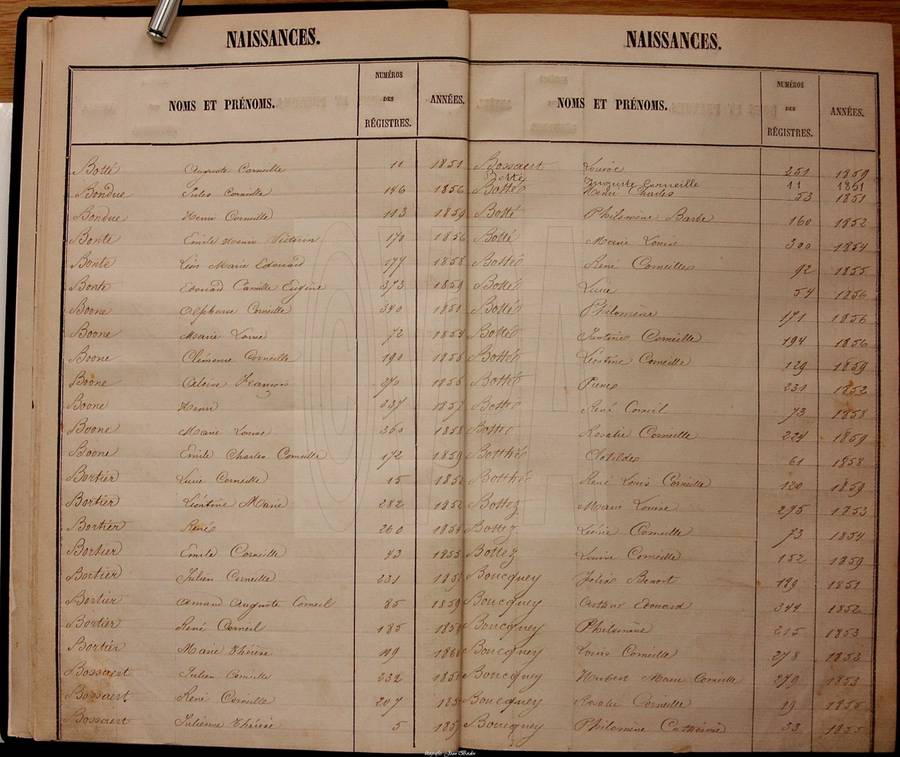 NAISSANCES.
NOMS ET PRÉNOMS. NUMÉROS DES RÉGISTRES. ANNÉES.
Botté Auguste Corneille 11 1851
Bondue Jules Corneille 146 1856
Bondue Henri Corneille 113 1859
Bonte Emile Henri Victorin 170 1856
Bonte Léon Marie Edouard 177 1858
Bonte Edouard Camille Eugène 373 1859
Boone Alphonse Corneille 340 1851
Boone Marie Louise 72
Boone Clémence Corneille 190
Boone
Boone Henri 337 1857
Boone Marie Louise 360 1858
Boone Emile Charles Corneille 172 1859
Bortier Lucie Corneille 15
Bortier Léontine Marie 282 1852
Bortier René 260 1854
Bortier Emile Corneille 43 1855
Bortier Julien Corneille 231
Bortier Amand Auguste Corneil 85 1859
Bortier René Corneil 185
Bortier Marie Thérèse 119 1860
Bossaert Julien Corneille 232
Bossaert René Corneille 207
Bossaert Julienne Thérèse 5
NAISSANCES.
NOMS ET PRÉNOMS. NUMÉROS DES RÉGISTRES. ANNÉES.
Bossaert 251 1859
Botté Auguste Corneille 11 1851
Botté Charles 53 1851
Botté Philomène Barbe 160 1852
Botté Marie Louise 300 1854
Botté René Corneille 92 1855
Botté Lucie 54 1856
Botté Philomène 171 1856
Botté Corneille 194 1856
Bottée Léontine Corneille 129 1859
Botthé 231 1852
Botthé René Corneil 73 1858
Botthé Rosalie Corneille 224 1859
Botthé Clotilde 61 1858
Botthé René Louis Corneille 120 1859
Bottez Marie Louise 295 1853
Bottez Léonie Corneille 73 1854
Bottez Louise Corneille 152 1859
Boucquey Benoit 189 1851
Boucquey Arthur Edouard 344 1852
Boucquey Philomène 215 1853
Boucquey Louis Corneille 278 1853
Boucquey Hubert Marie Corneille 279 1853
Boucquey Rosalie Corneille 19 1855
Boucquey Philomène Catherine 33 1855